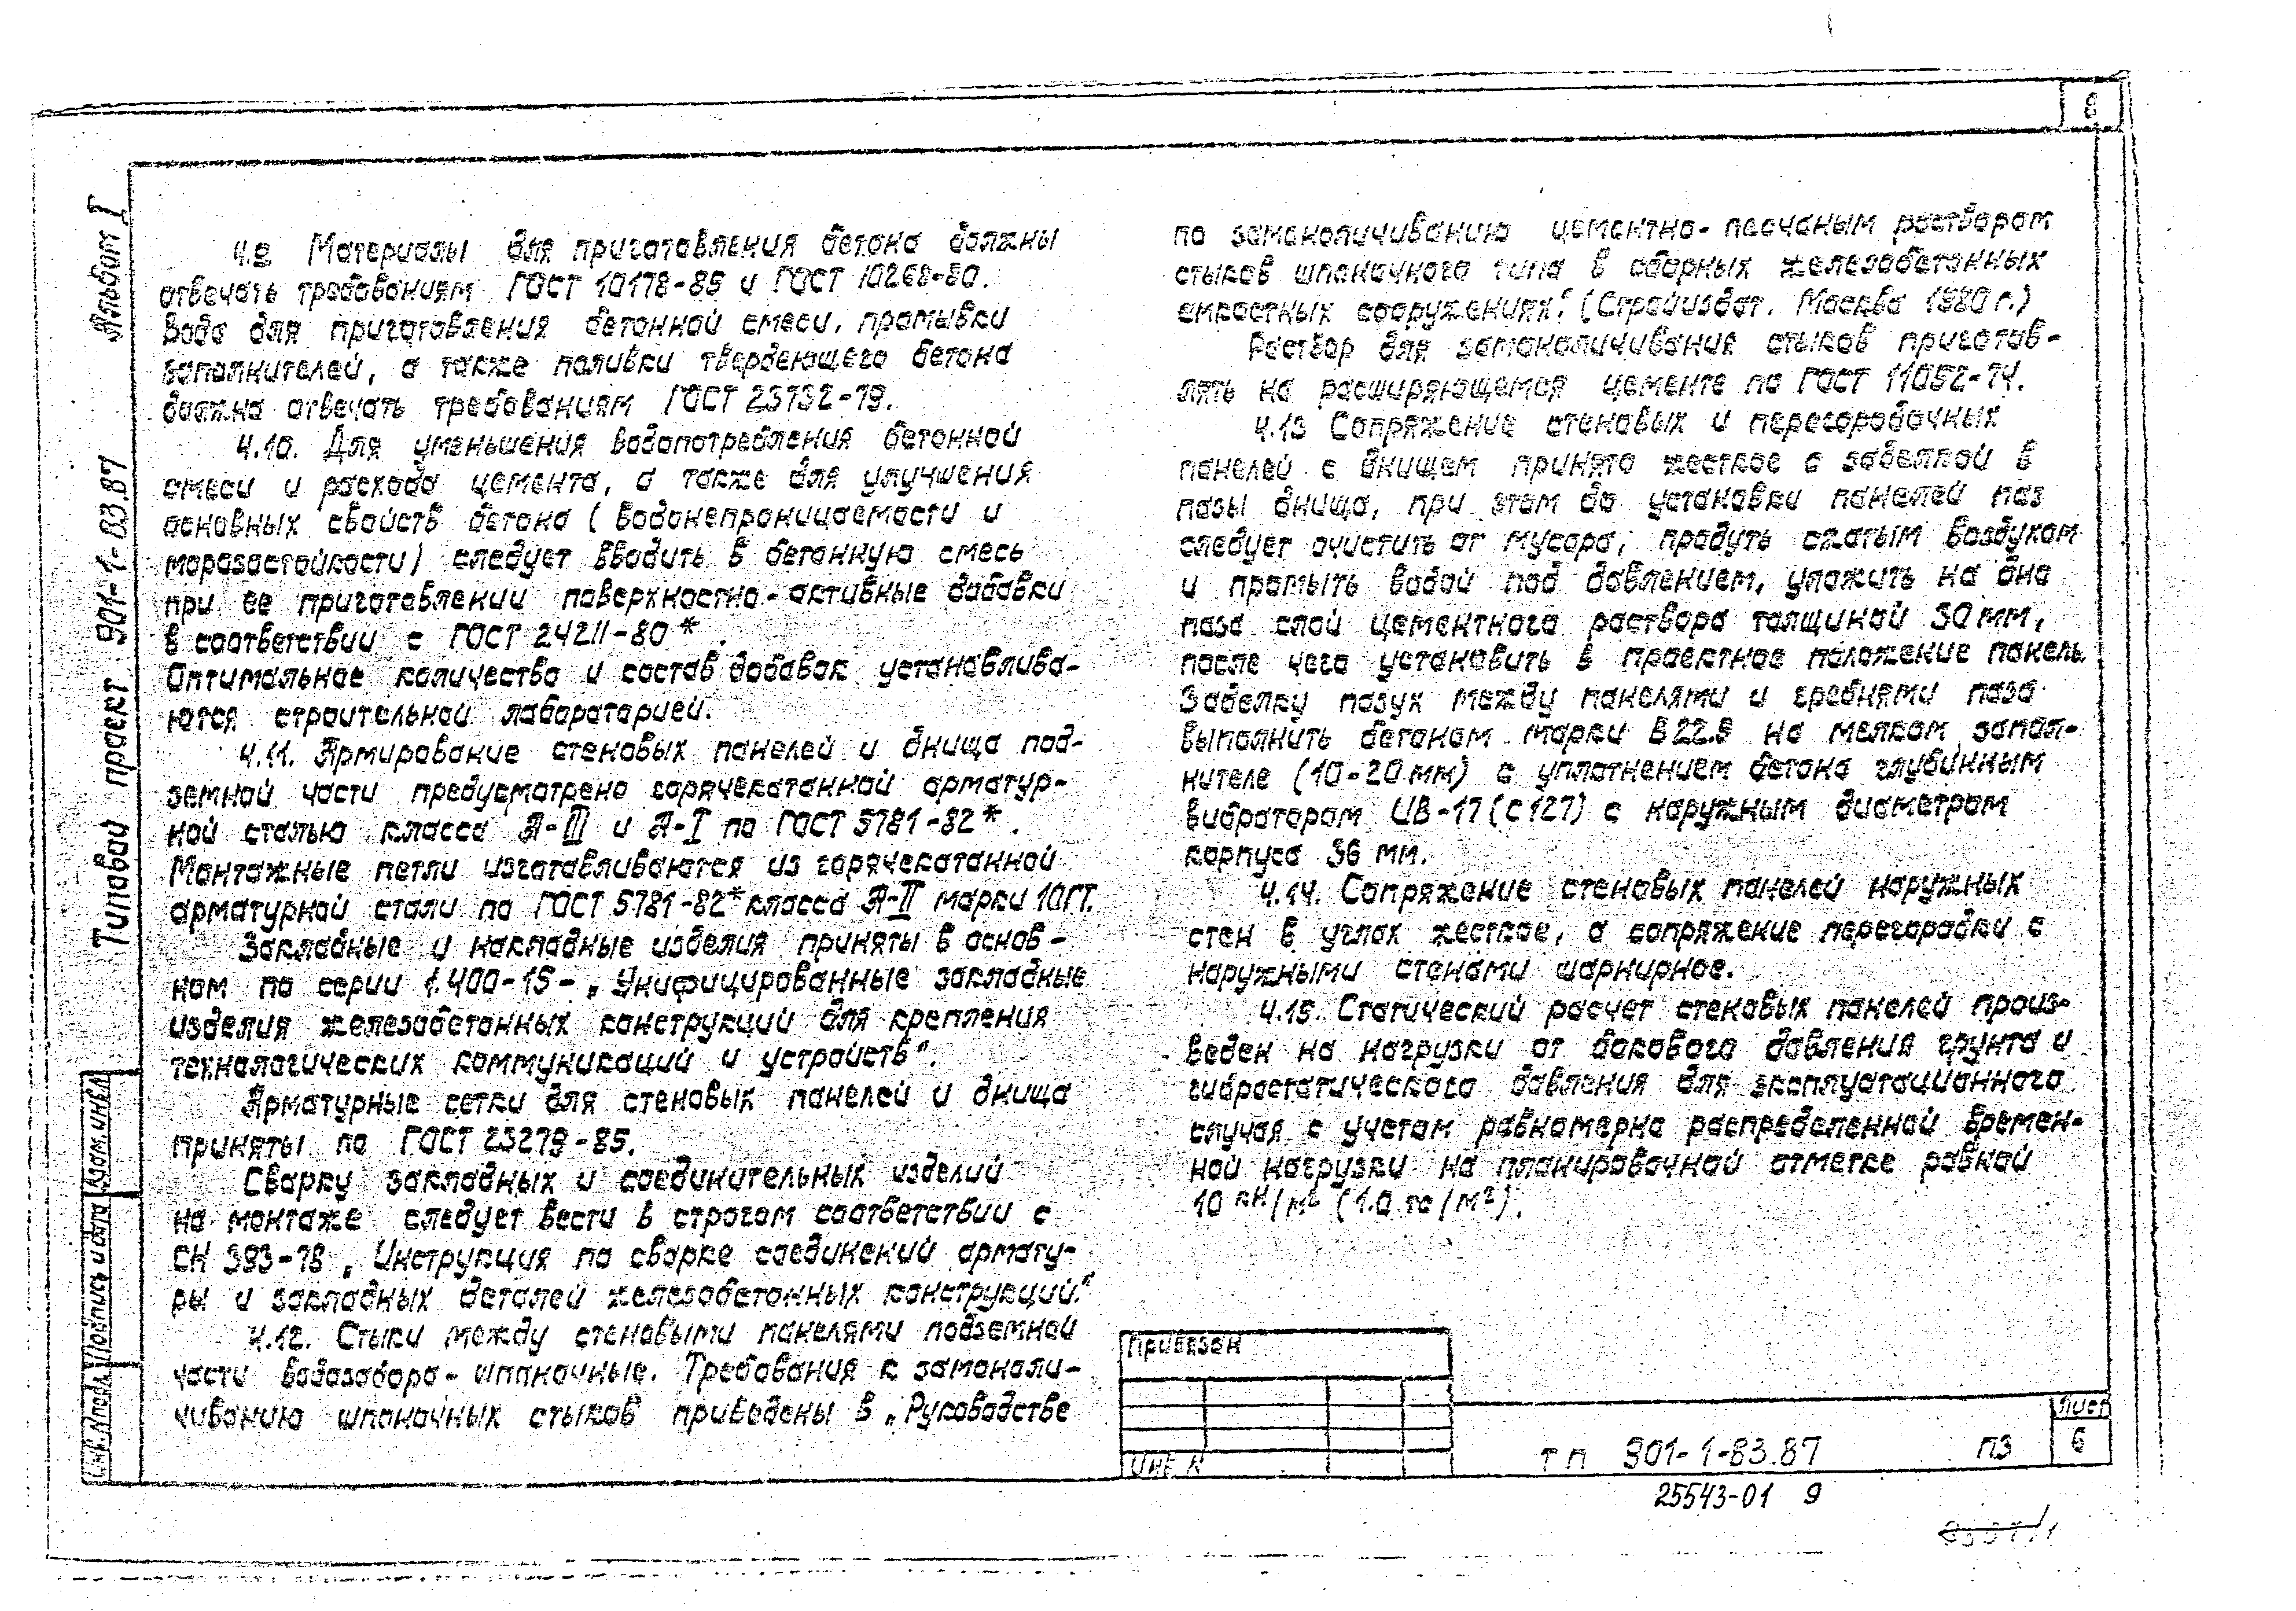 8
Альбом I
Типовой проект 901-1-83.87
4.9 Материалы для приготовления бетона должны
отвечать требованиям ГОСТ 10178-85 и ГОСТ 10268-80.
Вода для приготовления бетонной смеси, промывки
заполнителей, а также поливки твердеющего бетона
должна отвечать требованиям ГОСТ 23732-79.
4.10. Для уменьшения водопотребления бетонной
смеси и расхода цемента, а также для улучшения
основных свойств бетона (водонепроницаемости и
морозостойкости) следует вводить в бетонную смесь
при ее приготовлении поверхностно-активные добавки
в соответствии с ГОСТ 24211-80*.
Оптимальное количество и состав добавок устанавлива-
ются строительной лабораторией.
4.11. Армирование стеновых панелей и днища под-
земной части предусмотрено горячекатанной арматур-
ной сталью класса А-III и А-I по ГОСТ 5781-82*.
Монтажные петли изготавливаются из горячекатанной
арматурной стали по ГОСТ 5781-82* класса А-II марки 10ГТ.
Закладные и накладные изделия приняты в основ-
ном по серии 1.400-15- „Унифицированные закладные
изделия железобетонных конструкций для крепления
технологических коммуникаций и устройств".
Арматурные сетки для стеновых панелей и днища
приняты по ГОСТ 23279-85.
Сварку закладных и соединительных изделий
на монтаже следует вести в строгом соответствии с
СН 393-78 „Инструкция по сварке соединений армату-
ры и закладных деталей железобетонных конструкций."
4.12. Стыки между стеновыми панелями подземной
части водозабора - шпоночные. Требования к замоноли-
чиванию шпоночных стыков приведены в „Руководстве
по замоноличиванию цементно-песчаным раствором
стыков шпоночного типа в сборных железобетонных
емкостных сооружениях." (Стройиздат. Москва 1980 г.)
Раствор для замоноличивания стыков приготов-
лять на расширяющемся цементе по ГОСТ 11052-74.
4.13 Сопряжение стеновых и перегородочных
панелей с днищем принято жесткое с заделкой в
пазы днища, при этом до установки панелей паз
следует очистить от мусора, продуть сжатым воздухом
и промыть водой под давлением, уложить на дно
паза слой цементного раствора толщиной 30 мм,
после чего установить в проектное положение панель.
Заделку пазух между панелями и гребнями паза
выполнить бетоном марки В22.5 на мелком запол-
нителе (10-20 мм) с уплотнением бетона глубинным
вибратором ИВ-17 (С 127) с наружным диаметром
корпуса 36 мм.
4.14. Сопряжение стеновых панелей наружных
стен в углах жесткое, а сопряжение перегородки с
наружными стенами шарнирное.
4.15. Статический расчет стеновых панелей произ-
веден на нагрузки от бокового давления грунта и
гидростатического давления для эксплуатационного
случая с учетом равномерно распределенной времен-
ной нагрузки на планировочной отметке равной
10 кН/м² (1.0 тс/м²).
Взам.инв.№
Подпись и дата
Инв.№ подл.
Привязан
Инв. №
ТП 901-1-83.87 ПЗ
Лист
6
25543-01 9